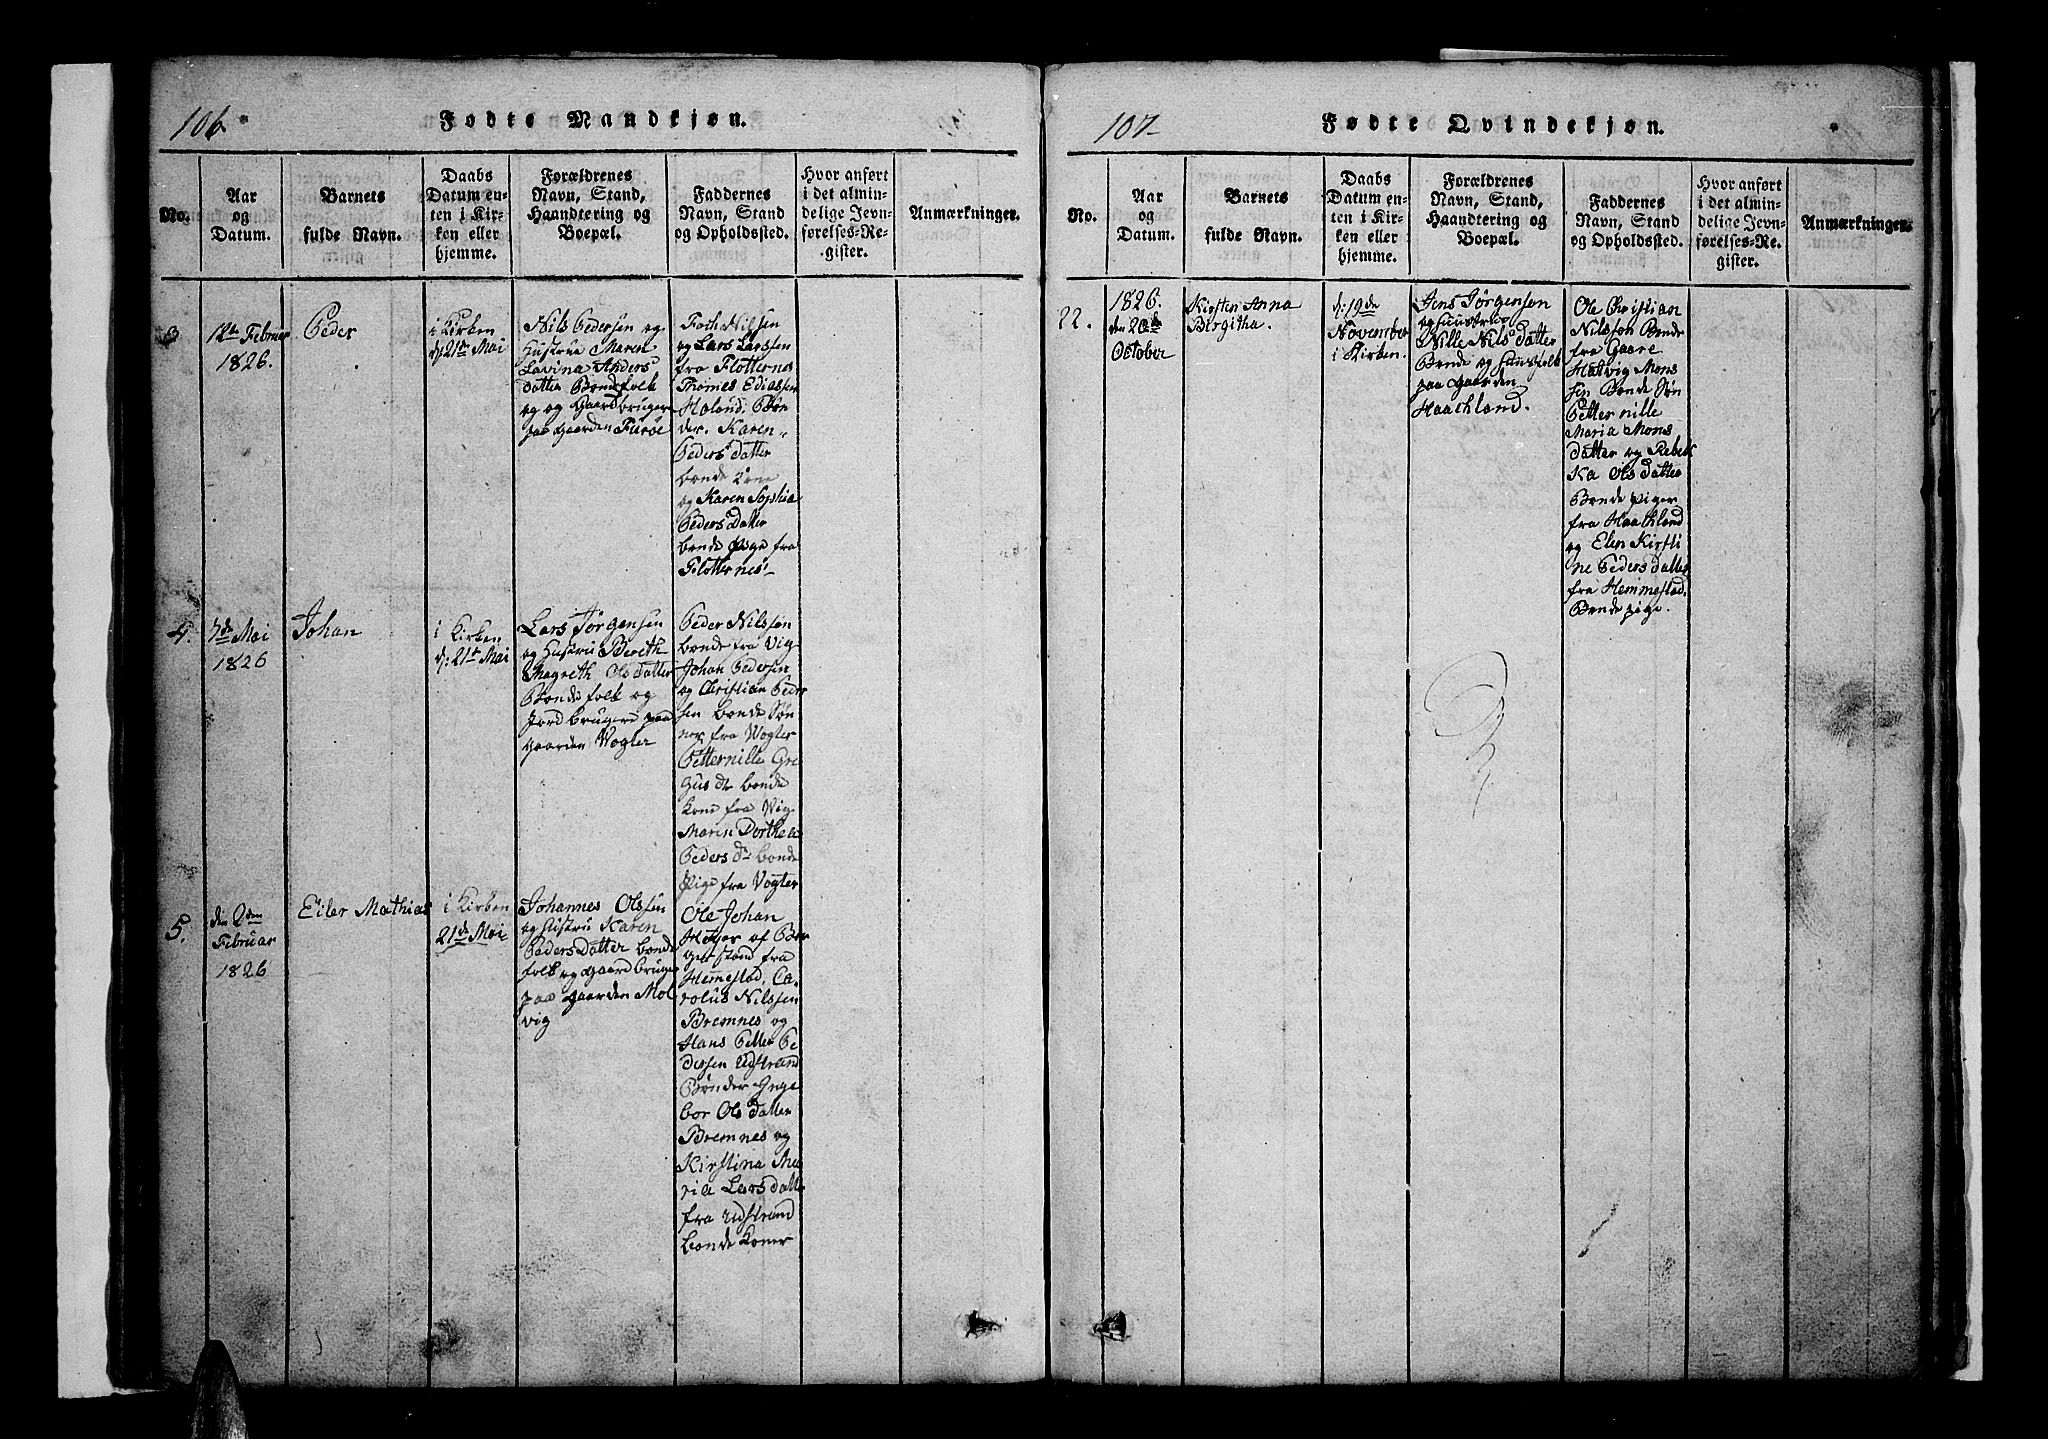 106
Fødte Mandkjøn.
No.
Aar
og
Datum.
Barnets
fulde Navn.
Daabs
Datum en-
ten i Kir-
ken eller
hjemme.
Forældrenes
Navn, Stand,
Haandtering og
Boepæl.
Faddernes
Navn, Stand
og Opholdssted.
Hvor anført
i det almin-
delige Jevn-
førelses-Re-
gister.
Anmærkninger.
3
12te Februar
1826.
Peder
i Kirken
d: 21de Mai
Nils Pedersen og
Hustrue Maren
Lavina Anders
datter Bondefolk
og og Gaardbrugere
paa Gaarden Furøe
Nilsen
og Lars Larssen
fra Flotternes
Thomes Ediassen
Holand. Bøn
der. Karen
Peders Datter
bonde Kone
og Karen Sophia
Peders Datter
bonde Pige fra
Flotternes
4.
3de Mai
1826
Johan
i Kirken
d: 21de Mai
Lars Jørgensen
og Hustru Bereth
Magreth Ols Datter
Bondefolk og
Jordbrugere paa
Gaarden Vogler
Peder Nilssen
bonde fra Vig
Johan Pedersen
og Christian Peder
sen bonde Søn
ner fra Vogler
Petternille Gre
gus dr bonde
Kone fra Vig
Maren Dorthea
Peders dr bonde
Pige fra Vogler
5.
den 2den
Februar
1826
Eiler Mathias
i Kirken
21de Mai
Johannes Olssen
og Hustru Karen
Peders Datter bonde
folk og Gaardbruger
paa Gaarden Mol
vig
Ole Johan
Hejer af Bor
gerstand fra
Hemestad, Ca-
rolus Nilssen
Bremnes og
Hans Petter Pe
dersen Udstrand
Bønder Inge
bor Ols Datter
Bremnes og
Kirstina Ma
ria Lars datter
fra Udstrand
bonde Koner
107
Fødte Qvindekjøn.
No.
Aar
og
Datum.
Barnets
fulde Navn.
Daabs
Datum en-
ten i Kir-
ken eller
hjemme.
Forældrenes
Navn, Stand,
Haandtering og
Boepæl.
Faddernes
Navn, Stand
og Opholdssted.
Hvor anført
i det almin-
delige Jevn-
førelses-Re-
gister.
Anmærkninger.
22.
1826.
den 20de
October
Kirsten Anna
Birgitha.
d: 19de
November
i Kirken.
Jens Jørgensen
og Huustroe
Nille Nils Datter
Bonde og Huusfolk
paa Gaarden
Haachland.
Ole Christian
Nilsson Bonde
fra Gaare
Hatvig Mons
sen Bonde Søn
Petternille
Maria Mons
Datter og Rebek
ka Ols Datter
Bonde piger
fra Haachland
og Elen Kirsti
ne Peders datter
fra Hemmestad.
Bonde pige.